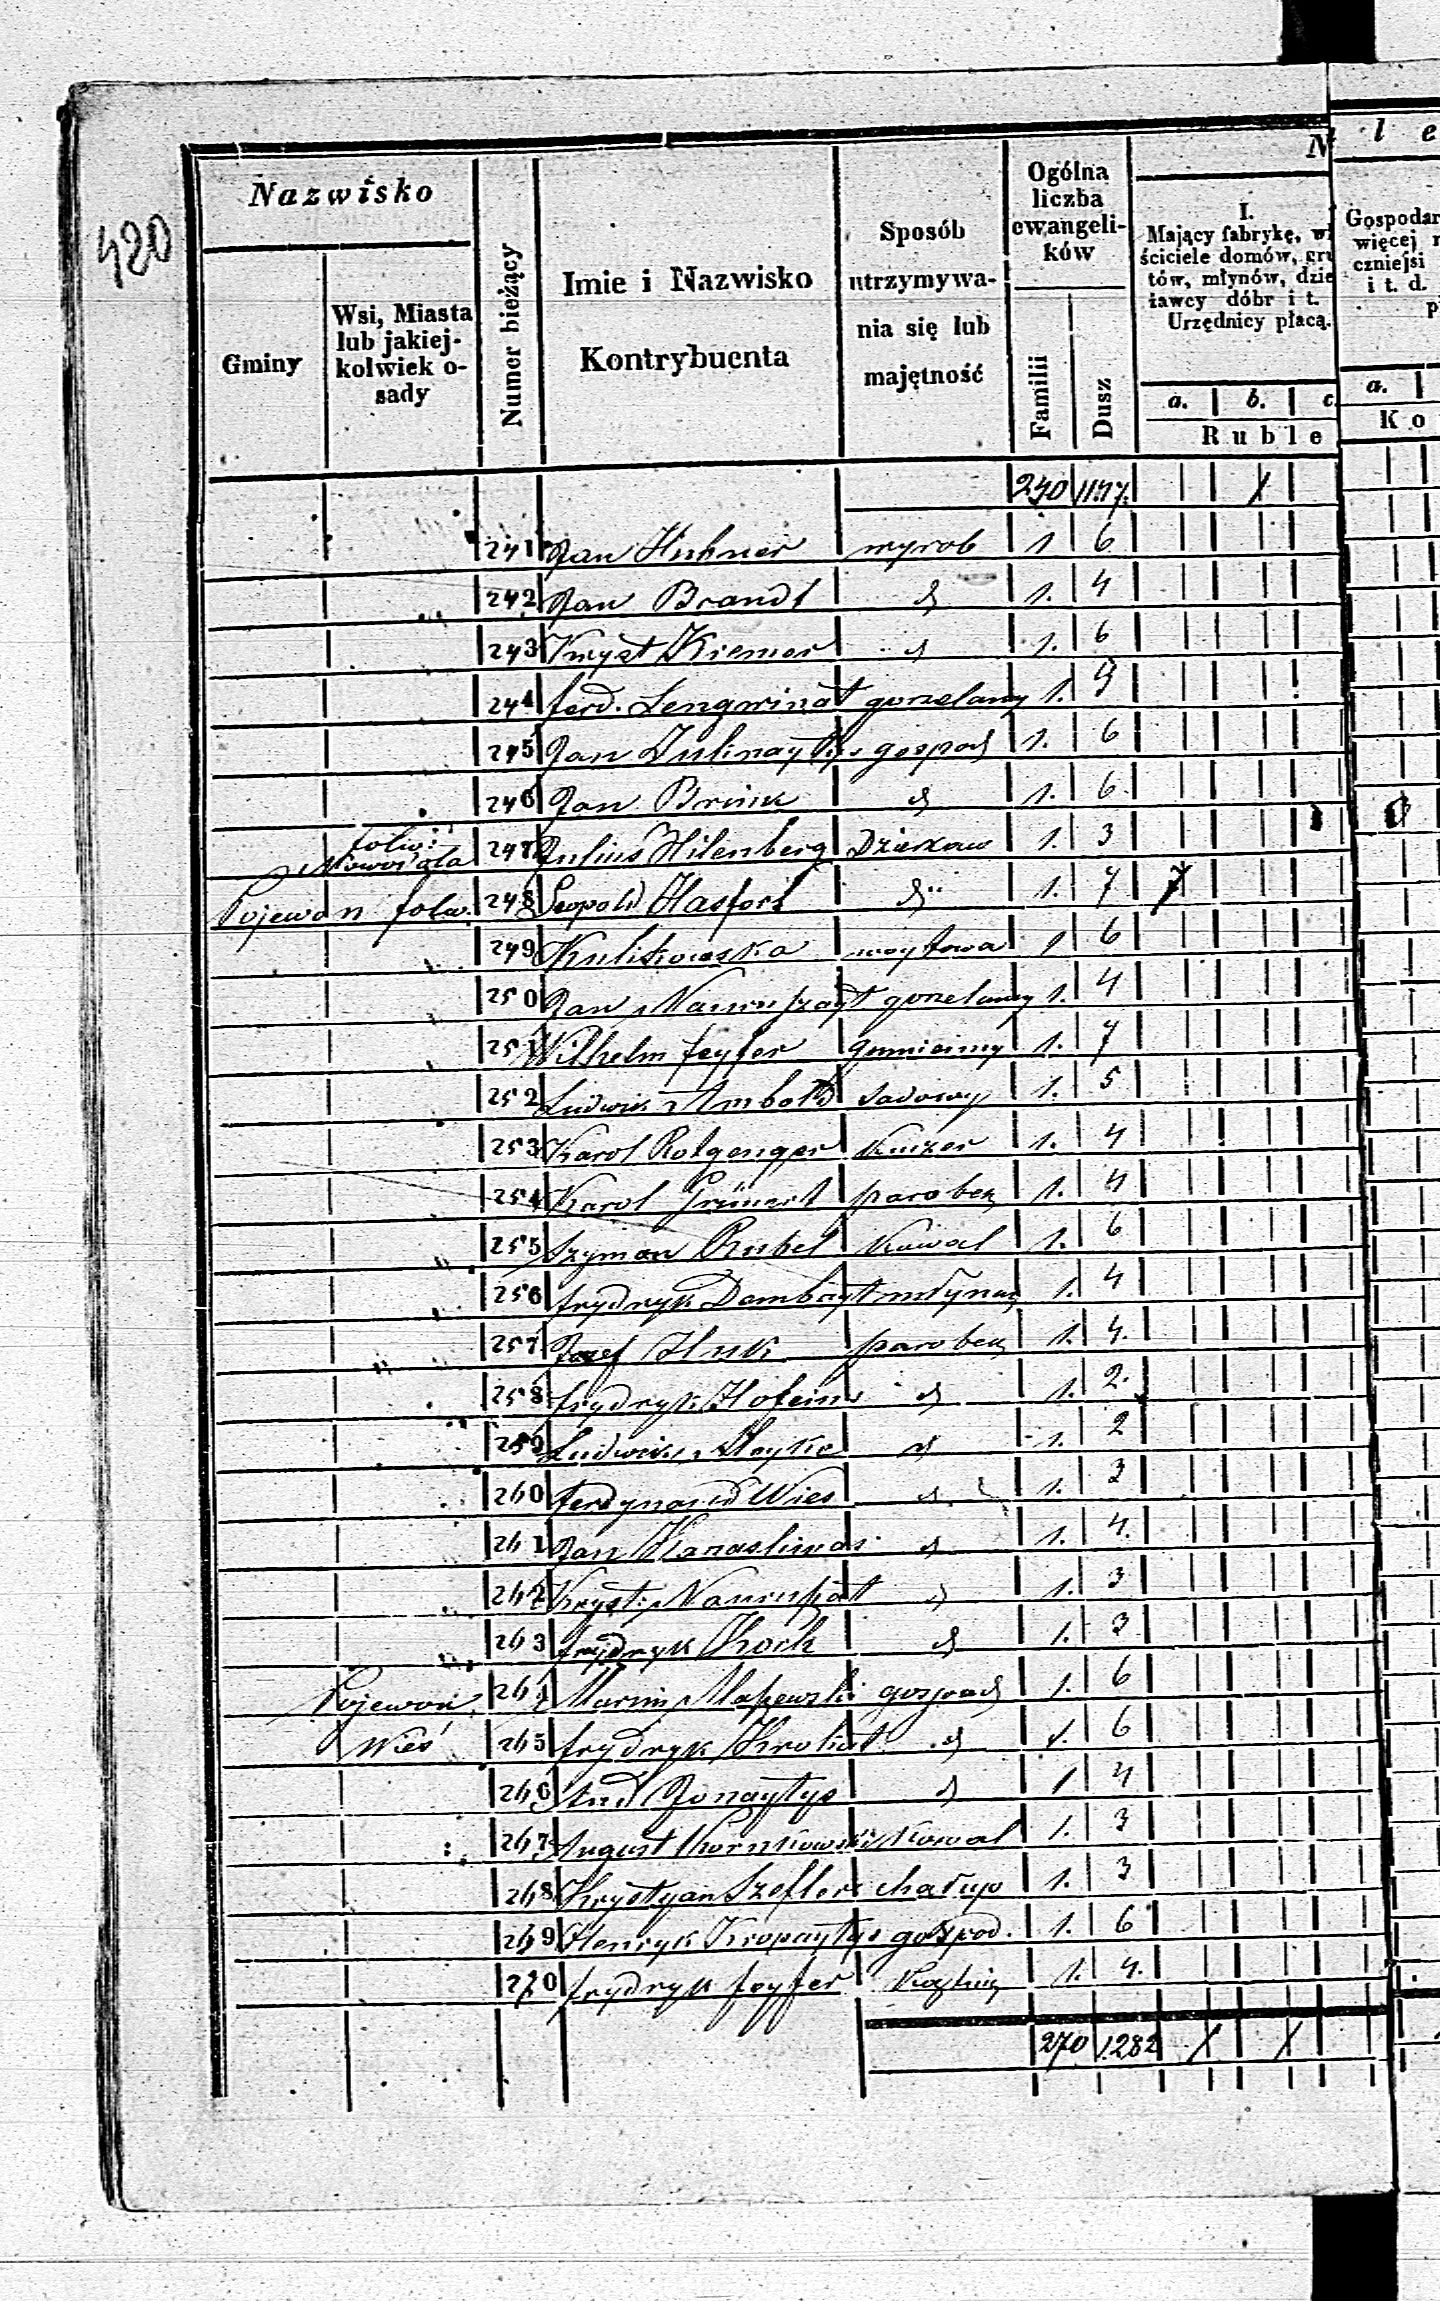 420
Nazwisko
Gminy
Wsi, Miasta
lub jakiej-
kolwiek o-
sady
Numer bieżący
Imie i Nazwisko
Kontrybuenta
Sposób
utrzymywa-
nia się lub
majętność
Ogólna
liczba
ewangeli-
ków
Familii
Dusz
N
I.
Mający fabrykę, wł
ściciele domów, gru
tów, młynów, dzie
żawcy dóbr i t.
Urzędnicy płacą.
a. b. c.
Ruble
l e
Gospodar
więcej
czniejsi
i t. d.
p
a.
Ko
240 1177.
241 Jan Huhner wyrob 1 6
242 Jan Brandt d 1. 4
243 Kryszt Kiemer d 1. 6
244 ferd. Lengwinat gorzelany 1.
245 Jan gospod 1. 6
246 Jan d 1. 6
folw:
Nowowola 247 Julius Hilenberg Dzierżaw 1. 3
Pojewon folw. 248 Leopold Hasfort d 1. 7 7
249 Kulikowska woytowa 1 6
250 Jan gorzelany 1. 4
251 Wilhelm feyfer gumienny 1. 7
252 Ludwik Ambold sadowy 1. 5
253 Karol Rotgenger Kuczer 1. 4
254 Karol Grünert parobek 1. 4
255 Szyman Rubel Kowal 1. 6
256 frydryk Dombayt młynarz 1. 4
257 Josef Huk parobek 1. 4.
258 frydryk Hofein d 1. 2.
259 Ludwik d 1. 2
260 ferdynand Wies d 1. 3
261 Jan d 1. 4.
262 Kryst. d 1. 3
263 frydryk Koch d 1. 3
Pojewon 264 Marcin gospod 1. 6
Wieś 265 frydryk d 1. 6
266 And Jonaytys d 1 4
267 August Kornkowski Kowal 1. 3
268 Krystyan Szefler chałup 1. 3
269 Henryk Kropaytys gospod. 1. 6
270 frydryk feyfer 1. 4.
270 1282